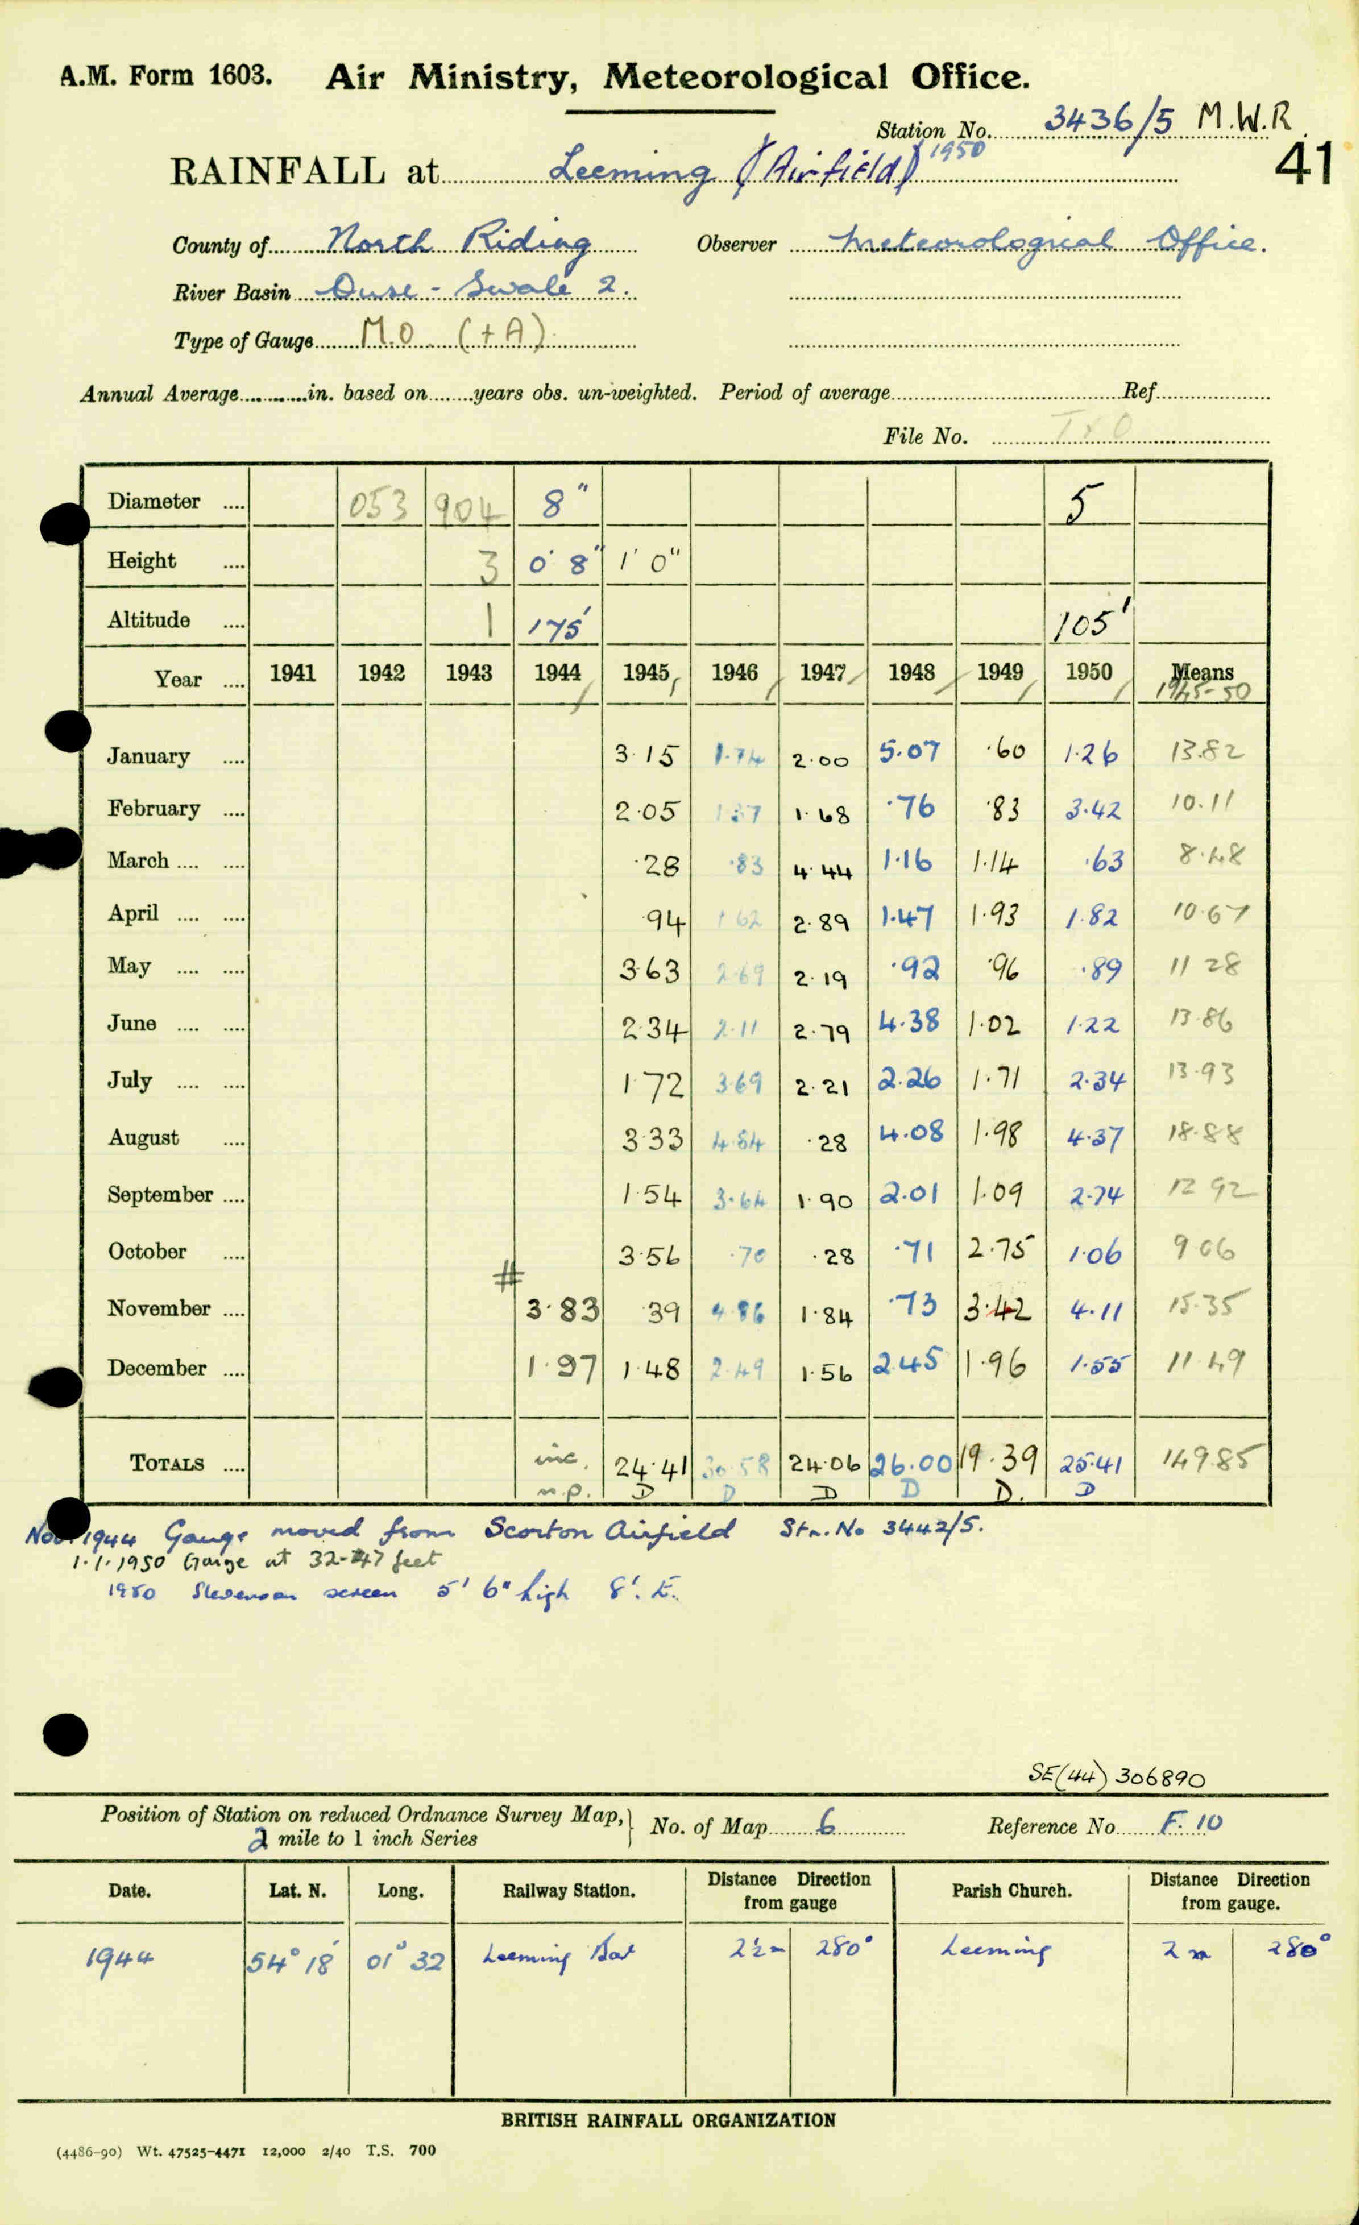 A.M. Form 1603. Air Ministry, Meteorological Office.
Station No. 3436/5 M.W.R.
41
RAINFALL at Leeming (Airfield) 1950
County of North Riding Observer Meteorological Office.
River Basin Ouse - Swale 2.
Type of Gauge M.O (+A)
Annual Average in. based on years obs. un-weighted. Period of average Ref.
File No.
Diameter 053 904 8" 5
Height 3 0' 8" 1' 0"
Altitude 1 175' 105'
Year 1941 1942 1943 1944 1945 1946 1947 1948 1949 1950 Means
1945-50
January 3.15 1.74 2.00 5.07 .60 1.26 13.82
February 2.05 1.37 1.68 .76 .83 3.42 10.11
March .28 .83 4.44 1.16 1.14 .63 8.48
April .94 1.62 2.89 1.47 1.93 1.82 10.67
May 3.63 2.69 2.19 .92 .96 .89 11 28
June 2.34 2.11 2.79 4.38 1.02 1.22 13.86
July 1.72 3.69 2.21 2.26 1.71 2.34 13.93
August 3.33 4.84 .28 4.08 1.98 4.37 18.88
September 1.54 3.64 1.90 2.01 1.09 2.74 12 92
October 3.56 .70 .28 .71 2.75 1.06 9 06
#
November 3.83 .39 4.86 1.84 .73 3.42 4.11 15.35
December 1.97 1.48 2.49 1.56 2.45 1.96 1.55 11.49
TOTALS inc. 24.41 30.58 24.06 26.00 19.39 25.41 149.85
n.p. D D D D D. D
Nov. 1944 Gauge moved from Scorton Airfield Stn. No 3442/5.
1.1.1950 Gauge at 32-47 feet
1950 Stevenson screen 5' 6" high 8'. E.
SE(44) 306890
Position of Station on reduced Ordnance Survey Map,} No. of Map 6 Reference No. F. 10
2 mile to 1 inch Series
Date. Lat. N. Long. Railway Station. Distance Direction from gauge Parish Church. Distance Direction from gauge.
1944 54° 18' 01° 32 Leeming Bar 2½m 280° Leeming 2 m 280°
BRITISH RAINFALL ORGANIZATION
(4486-90) Wt. 47525-4471 12,000 2/40 T.S. 700